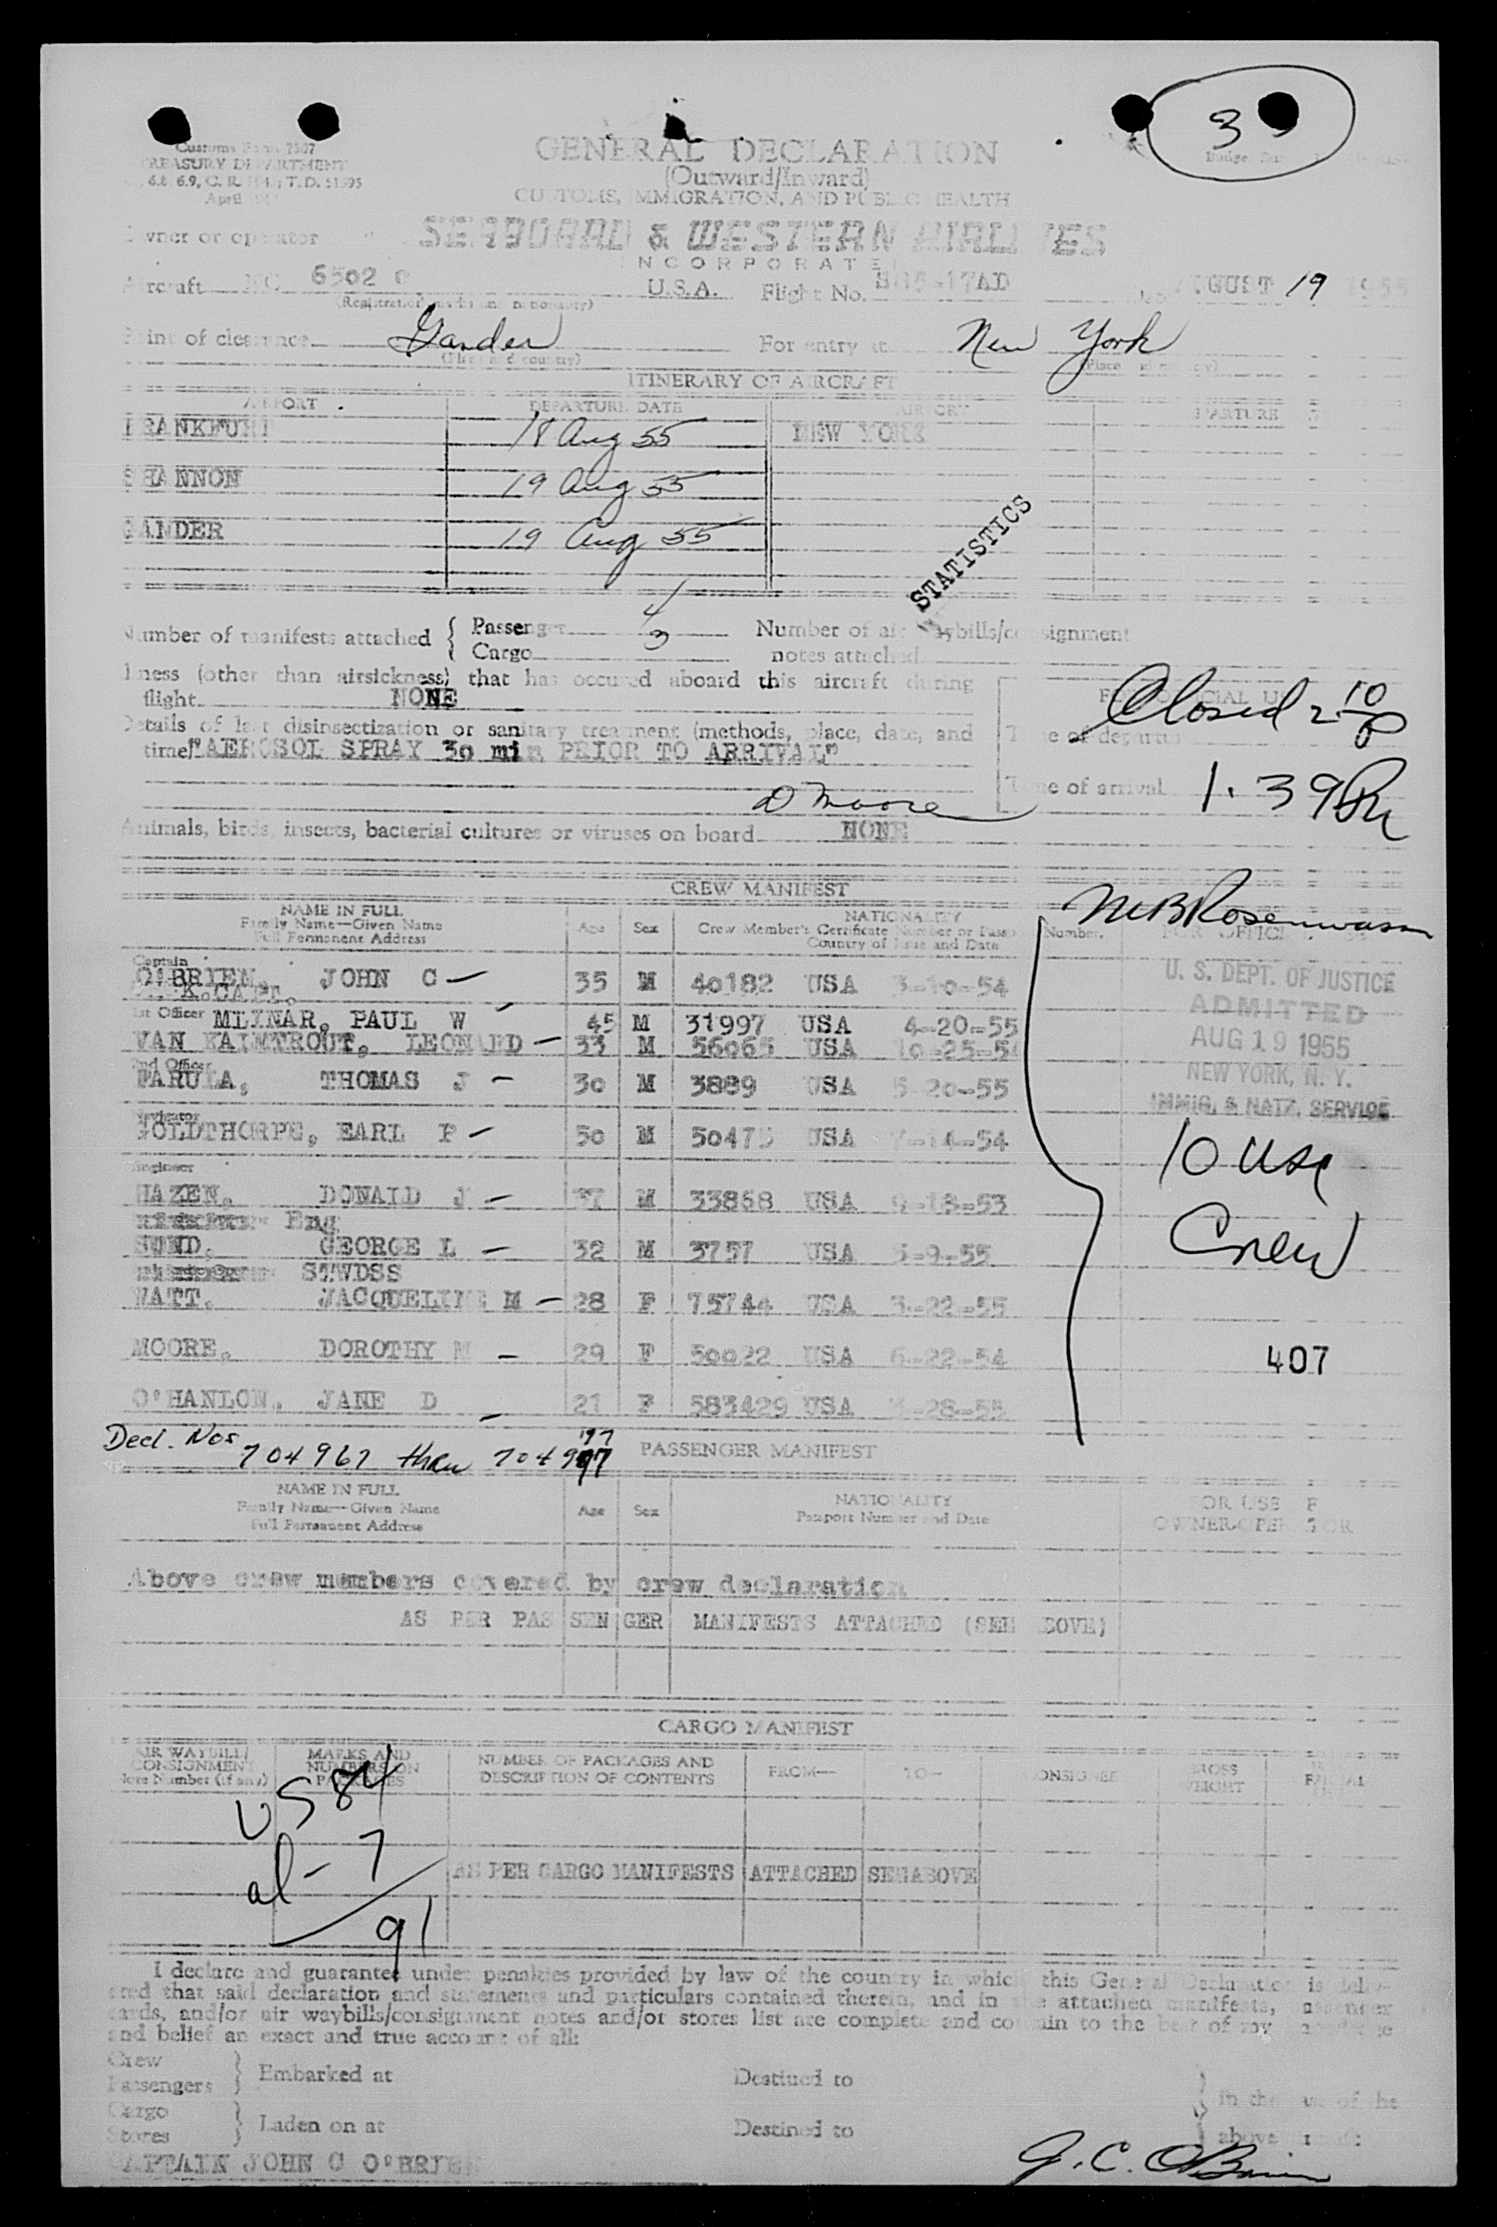 3
Customs Form 7507
TREASURY DEPARTMENT
6.8, 6.9, C. R. T. D. 51595
April
GENERAL DECLARATION
(Outward/Inward)
CUSTOMS, IMMIGRATION, AND PUBLIC HEALTH
Owner or operator SEABOARD & WESTERN AIRLINES
INCORPORATED
Aircraft NC 6502 C U.S.A. Flight No. AUGUST 19 1955
(Registration marks and nationality)
Point of clearance Gander For entry at New York
(Place and country) (Place and country)
ITINERARY OF AIRCRAFT
AIRPORT DEPARTURE DATE AIRPORT DEPARTURE
FRANKFURT 18 Aug 55 NEW YORK
SHANNON 19 Aug 55
GANDER 19 Aug 55
STATISTICS
Number of manifests attached { Passenger 4 Number of air waybills/consignment
Cargo 3 notes attached
Illness (other than airsickness) that has occured aboard this aircraft during
flight NONE
FOR OFFICIAL USE
Closed 2 10/P
Details of last disinsectization or sanitary treatment (methods, place, date, and
time) "AEROSOL SPRAY 30 min PRIOR TO ARRIVAL"
Time of departure
Time of arrival 1.39 Pm
D Moore
Animals, birds, insects, bacterial cultures or viruses on board NONE
CREW MANIFEST
MB Rosenwasser
NAME IN FULL
Family Name—Given Name
Full Permanent Address
Age Sex
NATIONALITY
Crew Member's Certificate Number or Passport Number,
Country of Issue and Date
FOR OFFICIAL USE
Captain
O'BRIEN, JOHN C — 35 M 40182 USA 3-10-54
CAPT.
1st Officer MLINAR, PAUL W — 45 M 31997 USA 4-20-55
VAN LEONARD — 33 M 56065 USA 10-25-54
2nd Officer
FARULA, THOMAS J — 30 M 3889 USA 5-20-55
Navigator
GOLDTHORPE, EARL F — 50 M 50475 USA 7-14-54
Engineer
HAZEN, DONALD J — 37 M 33868 USA 9-18-53
Eng
SUND, GEORGE L — 32 M 3757 USA 5-9-55
STWDSS
WATT, JACQUELINE M — 28 F 75744 USA 3-22-55
MOORE, DOROTHY M — 29 F 50022 USA 6-22-54
O'HANLON, JANE D — 21 F 583429 USA 28-55
U. S. DEPT. OF JUSTICE
ADMITTED
AUG 19 1955
NEW YORK, N. Y.
IMMIG. & NATZ. SERVICE
10 USC
Crew
407
Decl. Nos 704967 thru 704997
997
PASSENGER MANIFEST
NAME IN FULL
Family Name—Given Name
Full Permanent Address
Age Sex
NATIONALITY
Passport Number and Date
FOR USE OF
OWNER/OPERATOR
Above crew members covered by crew declaration
AS PER PASSENGER MANIFESTS ATTACHED (SEE ABOVE)
CARGO MANIFEST
AIR WAYBILL/
CONSIGNMENT
Note Number (if any)
MARKS AND
NUMBERS ON
PACKAGES
NUMBER OF PACKAGES AND
DESCRIPTION OF CONTENTS
FROM— TO— CONSIGNEE
GROSS
WEIGHT
US 84
al - 7
91
AS PER CARGO MANIFESTS ATTACHED SEE ABOVE
I declare and guarantee under penalties provided by law of the country in which this General Declaration is deliv-
ered that said declaration and statements and particulars contained therein, and in the attached manifests, passenger
cards, and/or air waybills/consignment notes and/or stores list are complete and contain to the best of my knowledge
and belief an exact and true account of all:
Crew
Passengers } Embarked at Destined to
Cargo
Stores } Laden on at Destined to
} in the case of the
above
CAPTAIN JOHN C O'BRIEN
J. C. O'Brien